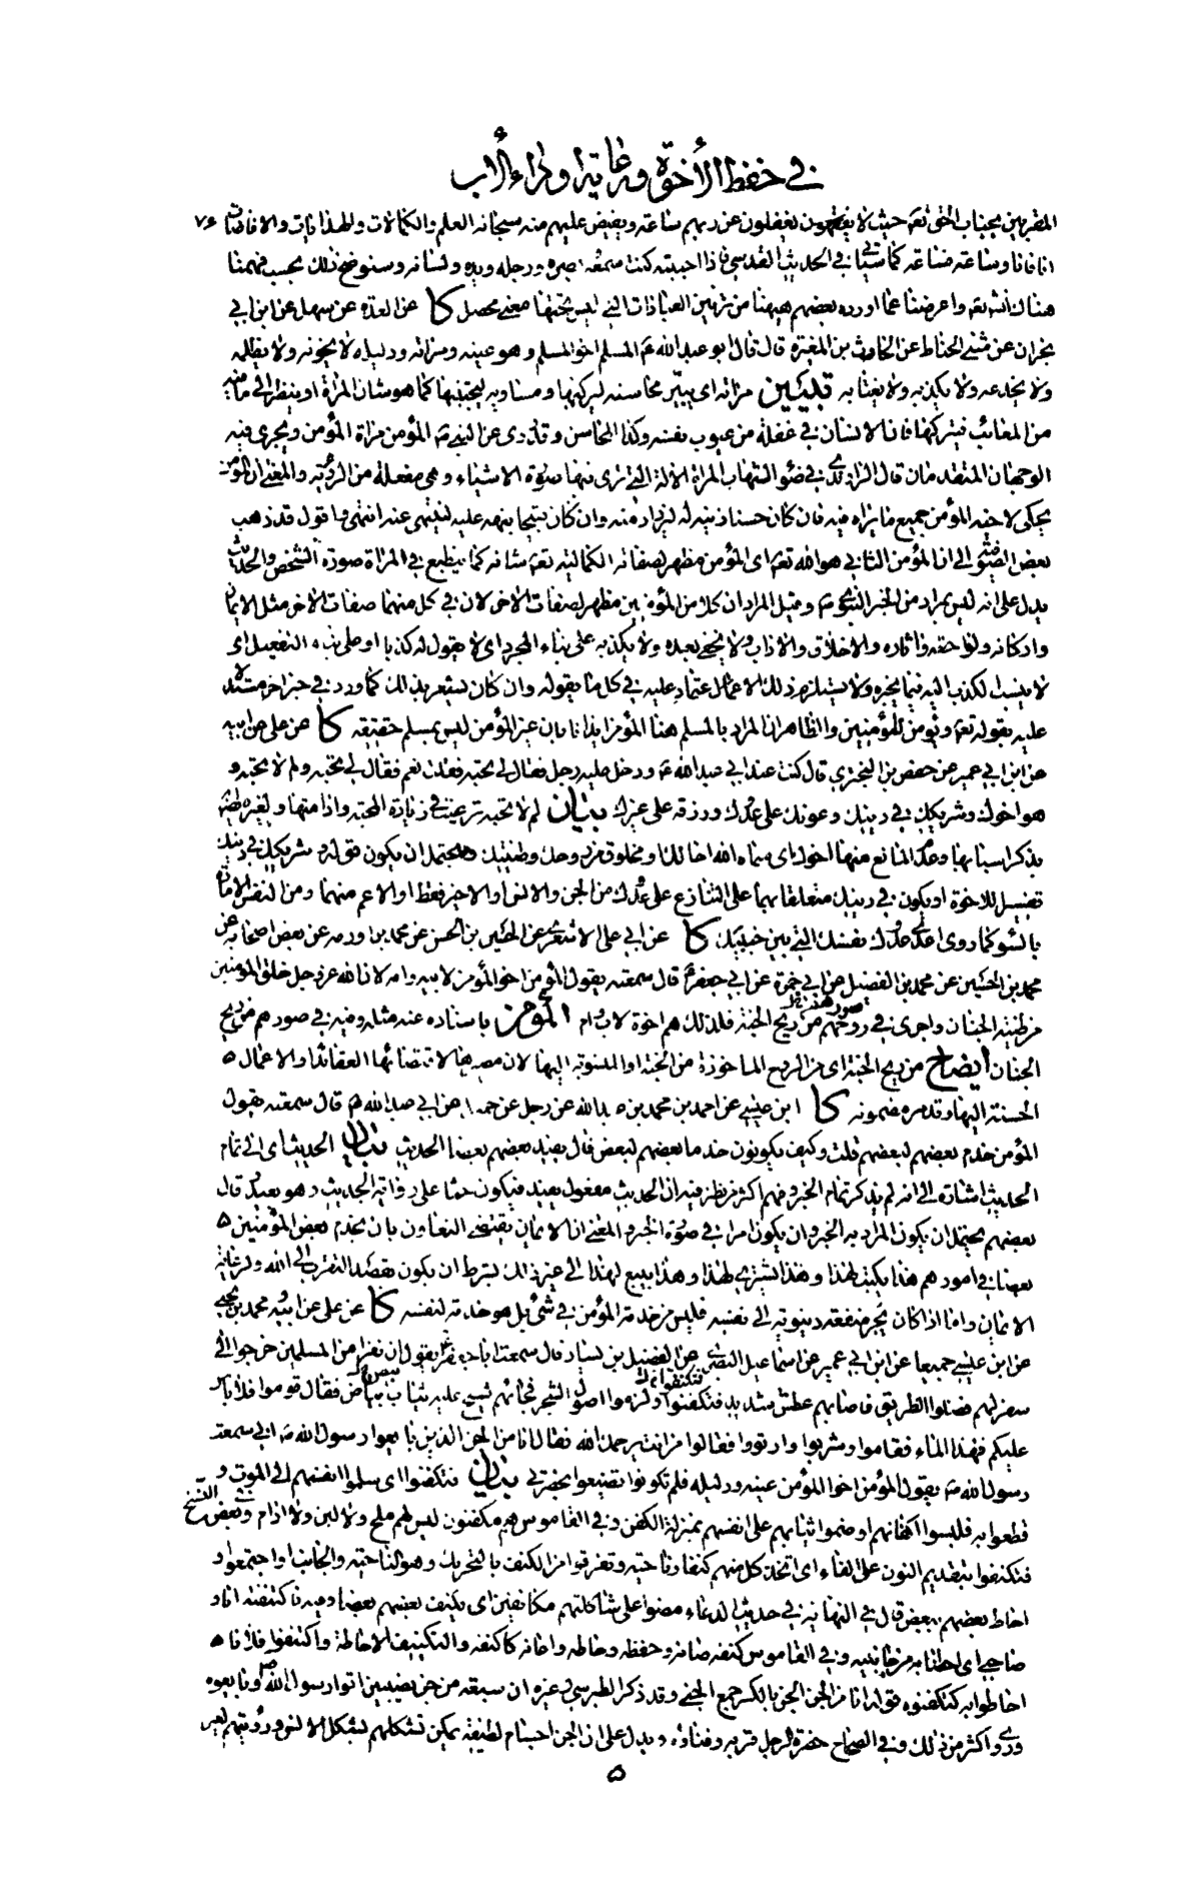 في حفظ الأخوة ورعاية اوداء الأب
المقربين بجناب الحق تعه حيث لا يغفلون عن ربهم ساعة ويفيض عليهم منه سبحانه العلم والكمالات والهدايات والافاضات ٧٤
انا فانا وساعة فساعة كما سيأتي في الحديث القدسي فاذا احببته كنت سمعه وبصره ورجله ويده ولسانه وسنوضح ذلك بحسب فهمنا
هناك انش تعه واعرضنا عما اورده بعضهم ههنا من تزيين العبادات التي ليس تحتها معنى محصل كا عن العدة عن سهل عن ابن ابي
نجران عن مثنى الحناط عن الحارث بن المغيرة قال قال ابو عبد الله ع المسلم اخو المسلم وهو عينه ومراته ودليله لا يخونه ولا يظلمه
ولا يخدعه ولا يكذبه ولا يغتابه تبيين مراته اي يبين محاسنه ليركبها ومساويه ليجتنبها كما هو شان المرآة او ينظر الى ما فيه
من المعائب فيتركها فان الانسان في غفلة من عيوب نفسه وكذا المحاسن وقد روى عن النبي ص المؤمن مرآة المؤمن ويجري فيه
الوجهان المتقدمان قال الراوندي في ضوء الشهاب المرآة الالة التي ترى فيها صورة الاشياء وهي مفعلة من الرؤية والمعنى ان المؤمن
يحكي لاخيه المؤمن جميع ما يراه فيه فان كان حسنا زينه له ليزداد منه وان كان قبيحا نبهه عليه لينتهي عنه انتهى واقول قد ذهب
بعض الصوفية الى ان المؤمن الثاني هو الله تعه اي المؤمن مظهر لصفاته الكمالية تعه شانه كما ينطبع في المرآة صورة الشخص والحديث
يدل على انه ليس بمراد من الخبر النبوي ص وقيل المراد ان كلا من المؤمنين مظهر لصفات الاخر لان في كل منهما صفات الاخر مثل الايمان
واركانه ولواحقه واثاره والاخلاق والاداب ولا يخفى بعده ولا يكذبه على بناء المجرد اي لا يقول له كذبا او على بناء التفعيل اي
لا ينسب الكذب اليه فيما يخبره ولا يستلزم ذلك الاعتماد عليه في كل ما يقوله وان كان يشعر بذلك كما ورد في خبر اخر مستدلا
عليه بقوله تعه ويؤمن للمؤمنين والظاهر ان المراد بالمسلم هنا المؤمن ايذانا بان غير المؤمن ليس بمسلم حقيقة كا عن علي عن ابيه
عن ابن ابي عمير عن حفص بن البختري قال كنت عند ابي عبد الله ع ودخل عليه رجل فقال لي تحبه فقلت نعم فقال لي تحبه ولم لا تحبه و
هو اخوك وشريكك في دينك وعونك على عدوك ورزقه على غيرك بيان لم لا تحبه ترغيب في زيادة المحبة وادامتها ولغيره ايضا
يذكر اسبابها وعدم المانع منها اخوك اي سماه الله اخا لك او مخلوق من روحك وطينتك ويحتمل ان يكون قوله وشريكك في دينك
تفسيرا للاخوة او يكون في دينك متعلقا بهما على التنازع على عدوك من الجن والانس او الاخير فقط او الاعم منهما ومن النفس الامارة
بالسوء كما روى اعدى عدوك نفسك التي بين جنبيك كا عن ابي علي الاشعري عن الحسين بن الحسن عن محمد بن اورمه عن بعض اصحابه عن
محمد بن الحسين عن محمد بن الفضيل عن ابي حمزة عن ابي جعفر ع قال سمعته يقول المؤمن اخو المؤمن لابيه وامه لان الله عز وجل خلق المؤمنين
من طينة الجنان واجرى في روحهم من ريح الجنة فلذلك هم اخوة لاب وام المؤمن باسناده عنه مثله وفيه في صورهم من ريح
الجنان ايضاح من ريح الجنة اي من الروح الماخوذة من الجنة او المنسوبة اليها لان مصيرها لاقتضائها العقائد والاعمال
الحسنة اليها وقد مره مضمونه كا ابن عيسى عن احمد بن محمد بن عبد الله عن رجل عن جميل عن ابي عبد الله ع قال سمعته يقول
المؤمن خدم بعضهم لبعضهم قلت وكيف يكونون خدما بعضهم لبعض قال يفيد بعضهم بعضا الحديث بيان الحديث اي الى تمام
الحديث اشارة الى انه لم يذكر تمام الخبر وفهم اكثر من نظر فيه ان الحديث مفعول يفيد فيكون حثا على رواية الحديث وهو بعيد قال
بعضهم يحتمل ان يكون المراد به الخبر وان يكون امرا في صورة الخبر والمعنى ان الايمان يقتضى التعاون بان يخدم بعض المؤمنين
بعضا في امورهم هذا يكتب لهذا وهذا يشتري لهذا وهذا يبيع لهذا الى غير ذلك بشرط ان يكون بقصد التقرب الى الله ولرعاية
الايمان واما اذا كان يجر منفعة دنيوية الى نفسه فليس من خدمة المؤمن في شئ بل هو خدمة لنفسه كا عن علي عن ابيه ومحمد بن يحيى
عن ابن عيسى جميعا عن ابن ابي عمير عن اسماعيل البصري عن الفضيل بن يسار قال سمعت ابا جعفر ع يقول ان نفرا من المسلمين خرجوا الى
سفر لهم فضلوا الطريق فاصابهم عطش شديد فتكفنوا ولزموا اصول الشجر فجائهم شيخ عليه ثياب بياض فقال قوموا فلا باس
عليكم فهذا الماء فقاموا وشربوا وارتووا فقالوا من انت يرحمك الله فقال انا من الجن الذين بايعوا رسول الله ص اني سمعت
رسول الله ص يقول المؤمن اخو المؤمن عينه ودليله فلم تكونوا تضيعوا بحضرتي بيان فتكفنوا اي سلموا انفسهم الى الموت و
قطعوا به فلبسوا اكفانهم او ضموا ثيابهم على انفسهم بمنزلة الكفن وفي القاموس هم مكفنون ليس لهم ملح ولا لبن ولا ادام وفي بعض النسخ
فتكنفوا بتقديم النون على الفاء اي اتخذ كل منهم كنفا وناحية وتفرقوا من الكنف بالتحريك وهو الناحية والجانب او اجتمعوا و
احاط بعضهم ببعض قال في النهاية في حديث الدعاء مضوا على شاكلتهم مكانفين اي يكنف بعضهم بعضا وفيه فاكتنفته انا و
صاحبي اي احطنا به من جانبيه وفي القاموس كنفه صانه وحفظه وحاطه واعانه كاكنفه والتكنيف الاحاطة واكتنفوا فلانا
احاطوا به كتكنفوه قوله انا من الجن الجن بالكسر جمع الجني وقد ذكر الطبرسي وغيره ان سبعة من جن نصيبين اتوا رسول الله ص وبايعوه
وروي اكثر من ذلك وفي الصحاح حضرة الرجل قربه وفناؤه ويدل على ان الجن اجسام لطيفة يمكن تشكلهم بشكل الانس ورؤيتهم لغير